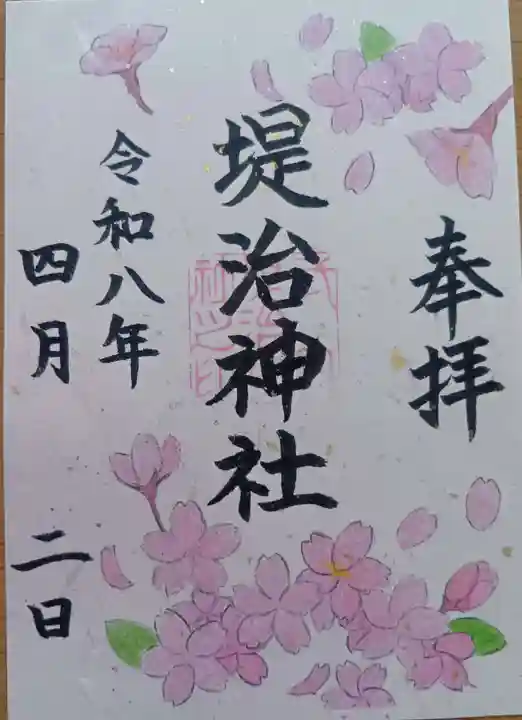 奉拝
堤治神社
令和八年
四月 二日